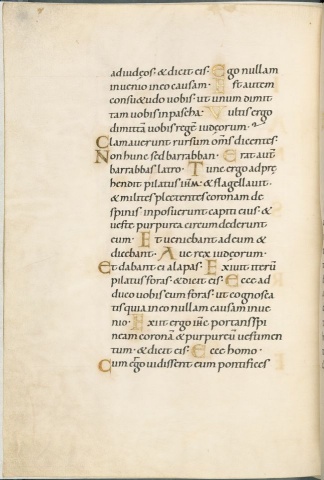 ad iudęos · & dicit eis · Ego nullam
invenio in eo causam · Est autem
consu&udo vobis · ut unum dimit
tam vobis in pascha · Vultis ergo
dimittā vobis regē iudęorum ·
Clamaverunt rursum om̄s dicentes ·
Non hunc sed barrabban · Erat aut̄
barrabbas latro · Tunc ergo adprę
hendit pilatus ih̄m · & flagellavit ·
& milites plectentes coronam de
spinis inposuerunt capiti eius · &
veste purpurea circumdederunt
eum · Et veniebant ad eum &
dicebant · Ave rex iudęorum ·
Et dabant ei alapas · Exiit iterū
pilatus foras · & dicit eis · Ecce ad
duco vobis eum foras · ut cognosca
tis quia in eo nullam causam inve
nio · Exiit ergo ih̄s portans spi
neam coronā & purpureū vestimen
tum · & dicit eis · Ecce homo ·
Cum ergo vidissent eum pontifices